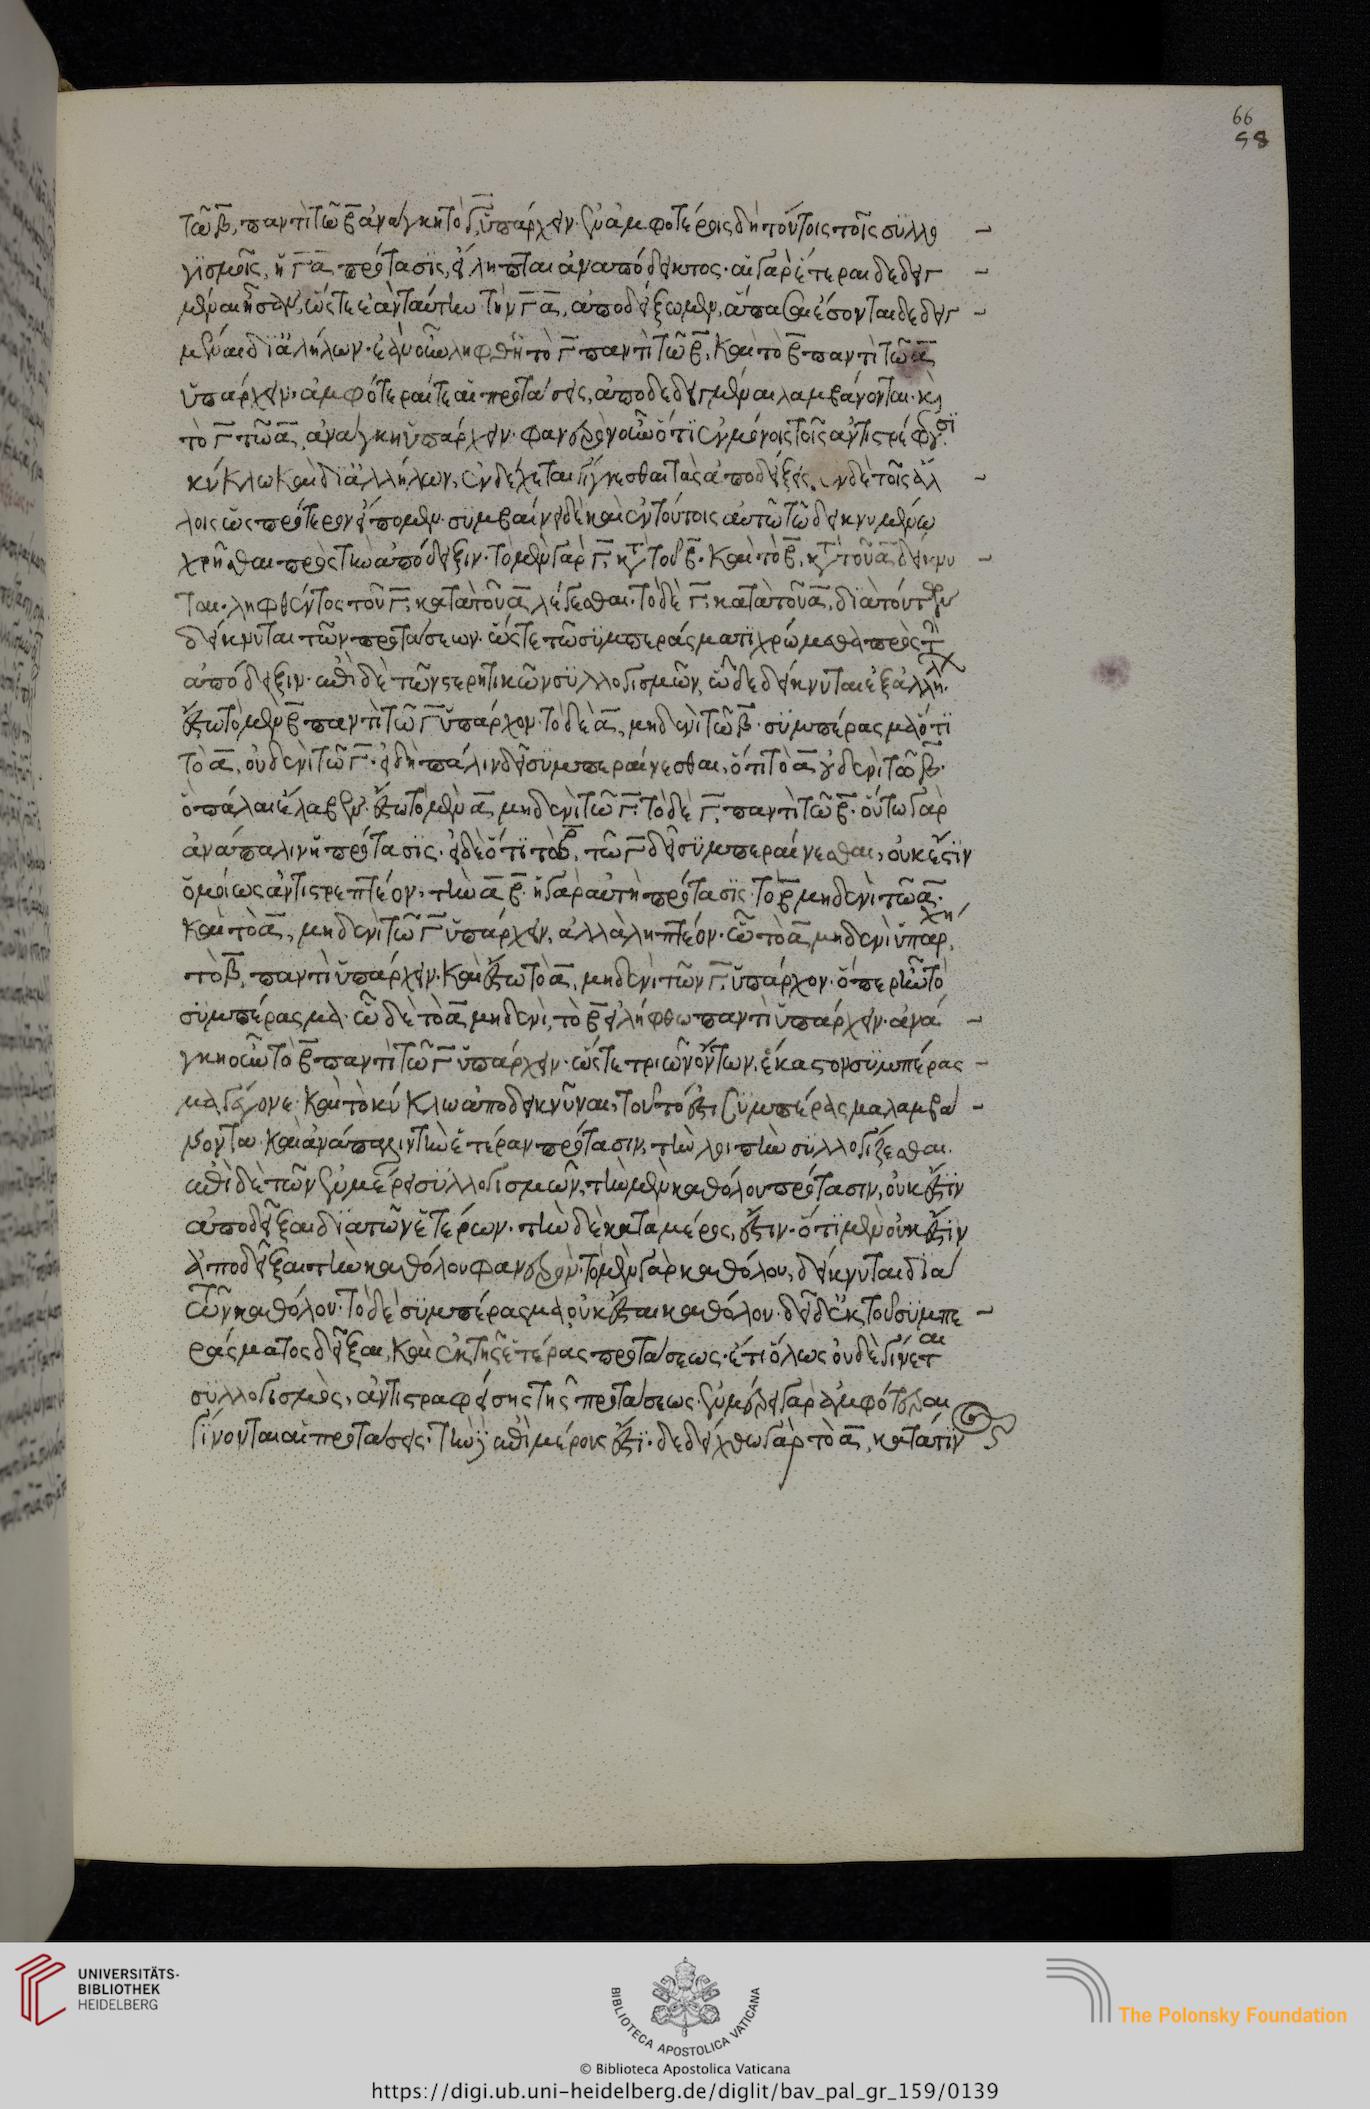 66
58
τῶ β̅, παντὶ τῶ β̅ ἀνάγκη τὸ γ̅, ὑπάρχειν· ἐν ἀμφοτέροις δὴ τούτοις τοῖς συλλο
γισμοῖς, ἡ γ̅ α̅ πρότασις, εἴληπται ἀναπόδεικτος· αἱ γὰρ ἕτεραι δεδειγ
μέναι ἦσαν, ὥστε ἐὰν ταύτην τὴν γ̅ α̅, ἀποδείξωμεν, ἅπασαι ἔσονται δεδειγ
μέναι δι' ἀλήλων· ἐὰν οὖν ληφθῆ τὸ γ̅ παντὶ τῶ β̅, καὶ τὸ β̅ παντὶ τῶ α̅
ὑπάρχειν, ἀμφότεραί τε αἱ προτάσεις, ἀποδεδειγμέναι λαμβάνονται· κὶ
τὸ γ̅ τῶ α̅, ἀνάγκη ὑπάρχειν· φανερὸν οὖν ὅτι ἐν μόνοις τοῖς ἀντιστρέφουσι
κύκλω καὶ δι' ἀλλήλων, ἐνδέχεται γίγνεσθαι τὰς ἀποδείξεις. ἐν δὲ τοῖς ἄλ
λοις ὡς πρότερον εἴπομεν· συμβαίνει δὲ καὶ ἐν τούτοις αὐτῶ τῶ δεικνυμένω
χρῆσθαι πρὸς τὴν ἀπόδειξιν· τὸ μὲν γὰρ γ̅, κτ τοῦ β̅. καὶ τὸ β̅, κτ τοῦ α̅ δείκνυ
ται· ληφθέντος τοῦ γ̅, κατὰ τοῦ α̅ λέγεσθαι· τὸ δὲ γ̅, κατὰ τοῦ α̅, διὰ τούτων
δείκνυται τῶν προτάσεων· ὥστε τῶ συμπεράσματι χρώμεθα πρὸς τ̅
ἀπόδειξιν· ἐπὶ δὲ τῶν στερητικῶν συλλογισμῶν, ὧδε δείκνυται ἐξ ἀλλήλ.
ἔστω τὸ μὲν β̅ παντὶ τῶ γ̅ ὑπάρχον· τὸ δὲ α̅, μηδενὶ τῶ β̅· συμπέρασμα ὅτι
τὸ α̅, οὐδενὶ τῶ γ̅· εἰ δὴ πάλιν δεῖ συμπεραίνεσθαι, ὅτι τὸ α̅ οὐδενὶ τῶ β̅·
ὃ πάλαι ἔλαβεν· ἔστω τὸ μὲν α̅ μηδενὶ τῶ γ̅· τὸ δὲ γ̅, παντὶ τῶ β̅· οὕτω γὰρ
ἀνάπαλιν ἡ πρότασις· εἰ δὲ ὅτι τὸ β̅, τῶ γ̅ δεῖ συμπεραίνεσθαι, οὐκέτ' ἔστιν
ὁμοίως ἀντιστρεπτέον, τὴν α̅ β̅· ἡ γὰρ αὐτὴ πρότασις· τὸ β̅ μηδενὶ τῶ α̅·
καὶ τὸ α̅, μηδενὶ τῶ γ̅ ὑπάρχειν, ἀλλὰ ληπτέον· ὧ τὸ α̅ μηδενὶ ὑπάρχει,
τὸ β̅, παντὶ ὑπάρχειν· καὶ ἔστω τὸ α̅, μηδενὶ τῶν γ̅, ὑπάρχον· ὅπερ ἦν τὸ
συμπέρασμα· ὧ δὲ τὸ α̅ μηδενί, τὸ β̅ εἰλήφθω παντὶ ὑπάρχειν· ἀνά
γκη οὖν τὸ β̅ παντὶ τῶ γ̅ ὑπάρχειν· ὥστε τριῶν ὄντων, ἕκαστον συμπέρας
μα γέγονε· καὶ τὸ κύκλω ἀποδεικνῦναι, τοῦτό ἐστι συμπέρασμα λαμβά
νοντα· καὶ ἀνάπαλιν τὴν ἑτέραν πρότασιν, τὴν λοιπὴν συλλογίζεσθαι.
ἐπὶ δὲ τῶν ἐν μέρει συλλογισμῶν, τὴν μὲν καθόλου πρότασιν, οὐκ ἔστιν
ἀποδεῖξαι διὰ τῶν ἑτέρων· τὴν δὲ κατὰ μέρος, ἔστιν· ὅτι μὲν οὐκ ἔστιν
ἀποδεῖξαι τὴν καθόλου φανερόν· τὸ μὲν γὰρ καθόλου, δείκνυται διὰ
τῶν καθόλου· τὸ δὲ συμπέρασμα, οὐκ ἔσται καθόλου· δεῖ δ' ἐκ τοῦ συμπε
ράσματος δεῖξαι, καὶ ἐκ τῆς ἑτέρας προτάσεως· ἔτι ὅλως οὐδὲ γίνεται
συλλογισμὸς, ἀντιστραφείσης τῆς προτάσεως· ἐν μέρει γὰρ ἀμφότεραι
γίνονται αἱ προτάσεις· τὴν δ' ἐπὶ μέρους ἔστι· δεδείχθω γὰρ τὸ α̅, κατά τιν
UNIVERSITÄTS-
BIBLIOTHEK
HEIDELBERG
BIBLIOTECA APOSTOLICA VATICANA
The Polonsky Foundation
© Biblioteca Apostolica Vaticana
https://digi.ub.uni-heidelberg.de/diglit/bav_pal_gr_159/0139